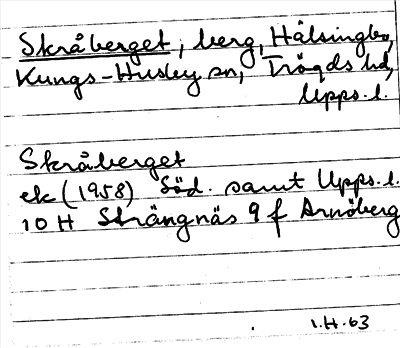 Skråberget, berg, Hälsingbo,
Kungs-Husby sn, Trögds hd,
Upps. l.
Skråberget
ek (1958) Söd. samt Upps. l.
10 H Strängnäs 9 f Arnöberg
1.H.63